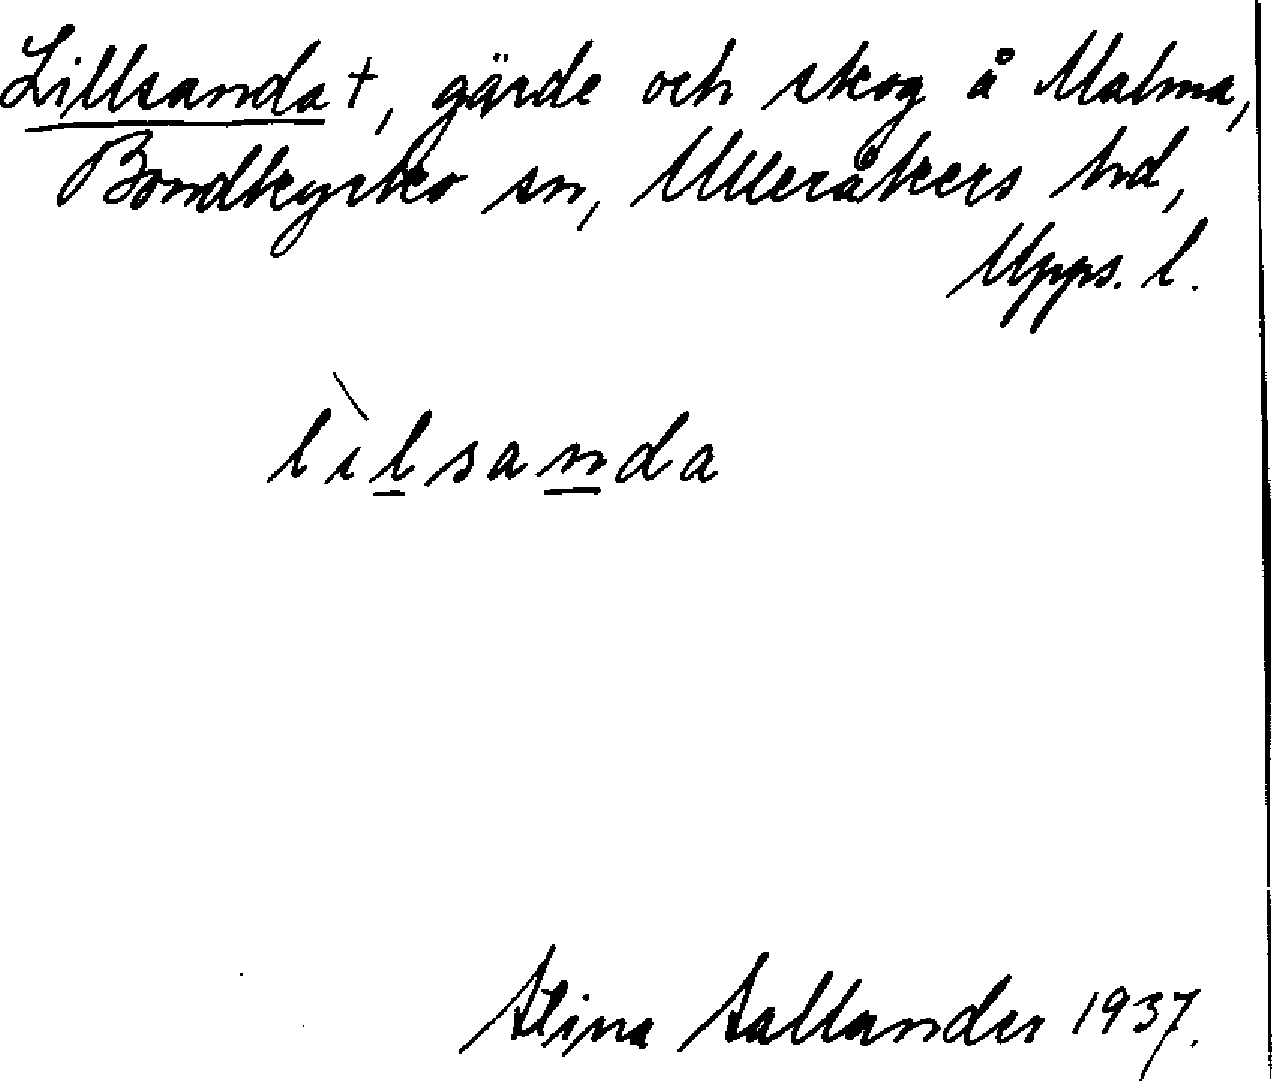 Lillsanda †, gärde och skog å Malma,
Bondkyrko sn, Ulleråkers hd,
Upps. l.
lìlsanda
Stina Sallander 1937.